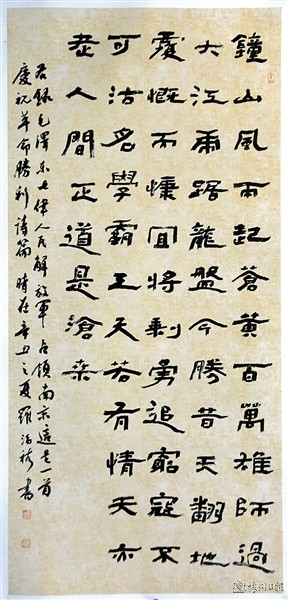 鐘山風雨起蒼黃百萬雄師過
大江虎踞龍盤今勝昔天翻地
覆慨而慷宜將剩勇追窮寇不
可沽名學霸王天若有情天亦
老人間正道是滄桑
右錄毛澤東七律人民解放軍占領南京這是一首
慶祝革命勝利詩篇 時在辛丑之夏 羅 書
梅州日报